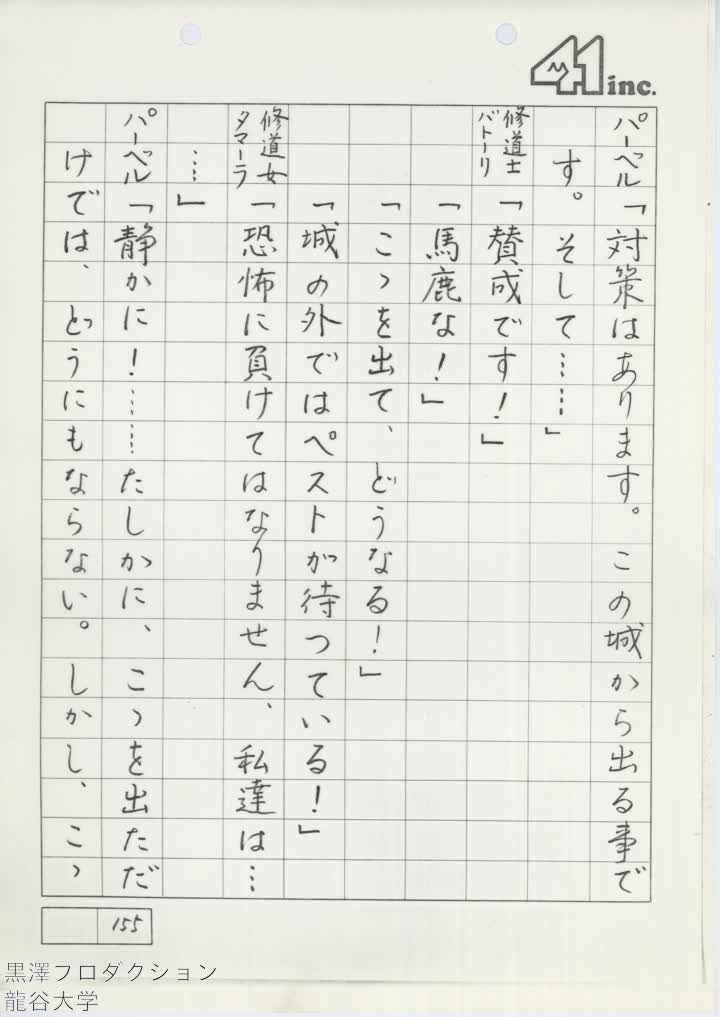 41 inc.
パーベル「対策はあります。この城から出る事で
す。そして……」
修道士バトーリ「賛成です！」
「馬鹿な！」
「こゝを出て、どうなる！」
「城の外ではペストが待っている！」
修道女タマーラ「恐怖に負けてはなりません、私達は…
…」
パーベル「静かに！……たしかに、こゝを出ただ
けでは、どうにもならない。しかし、こゝ
155
黒澤プロダクション
龍谷大学